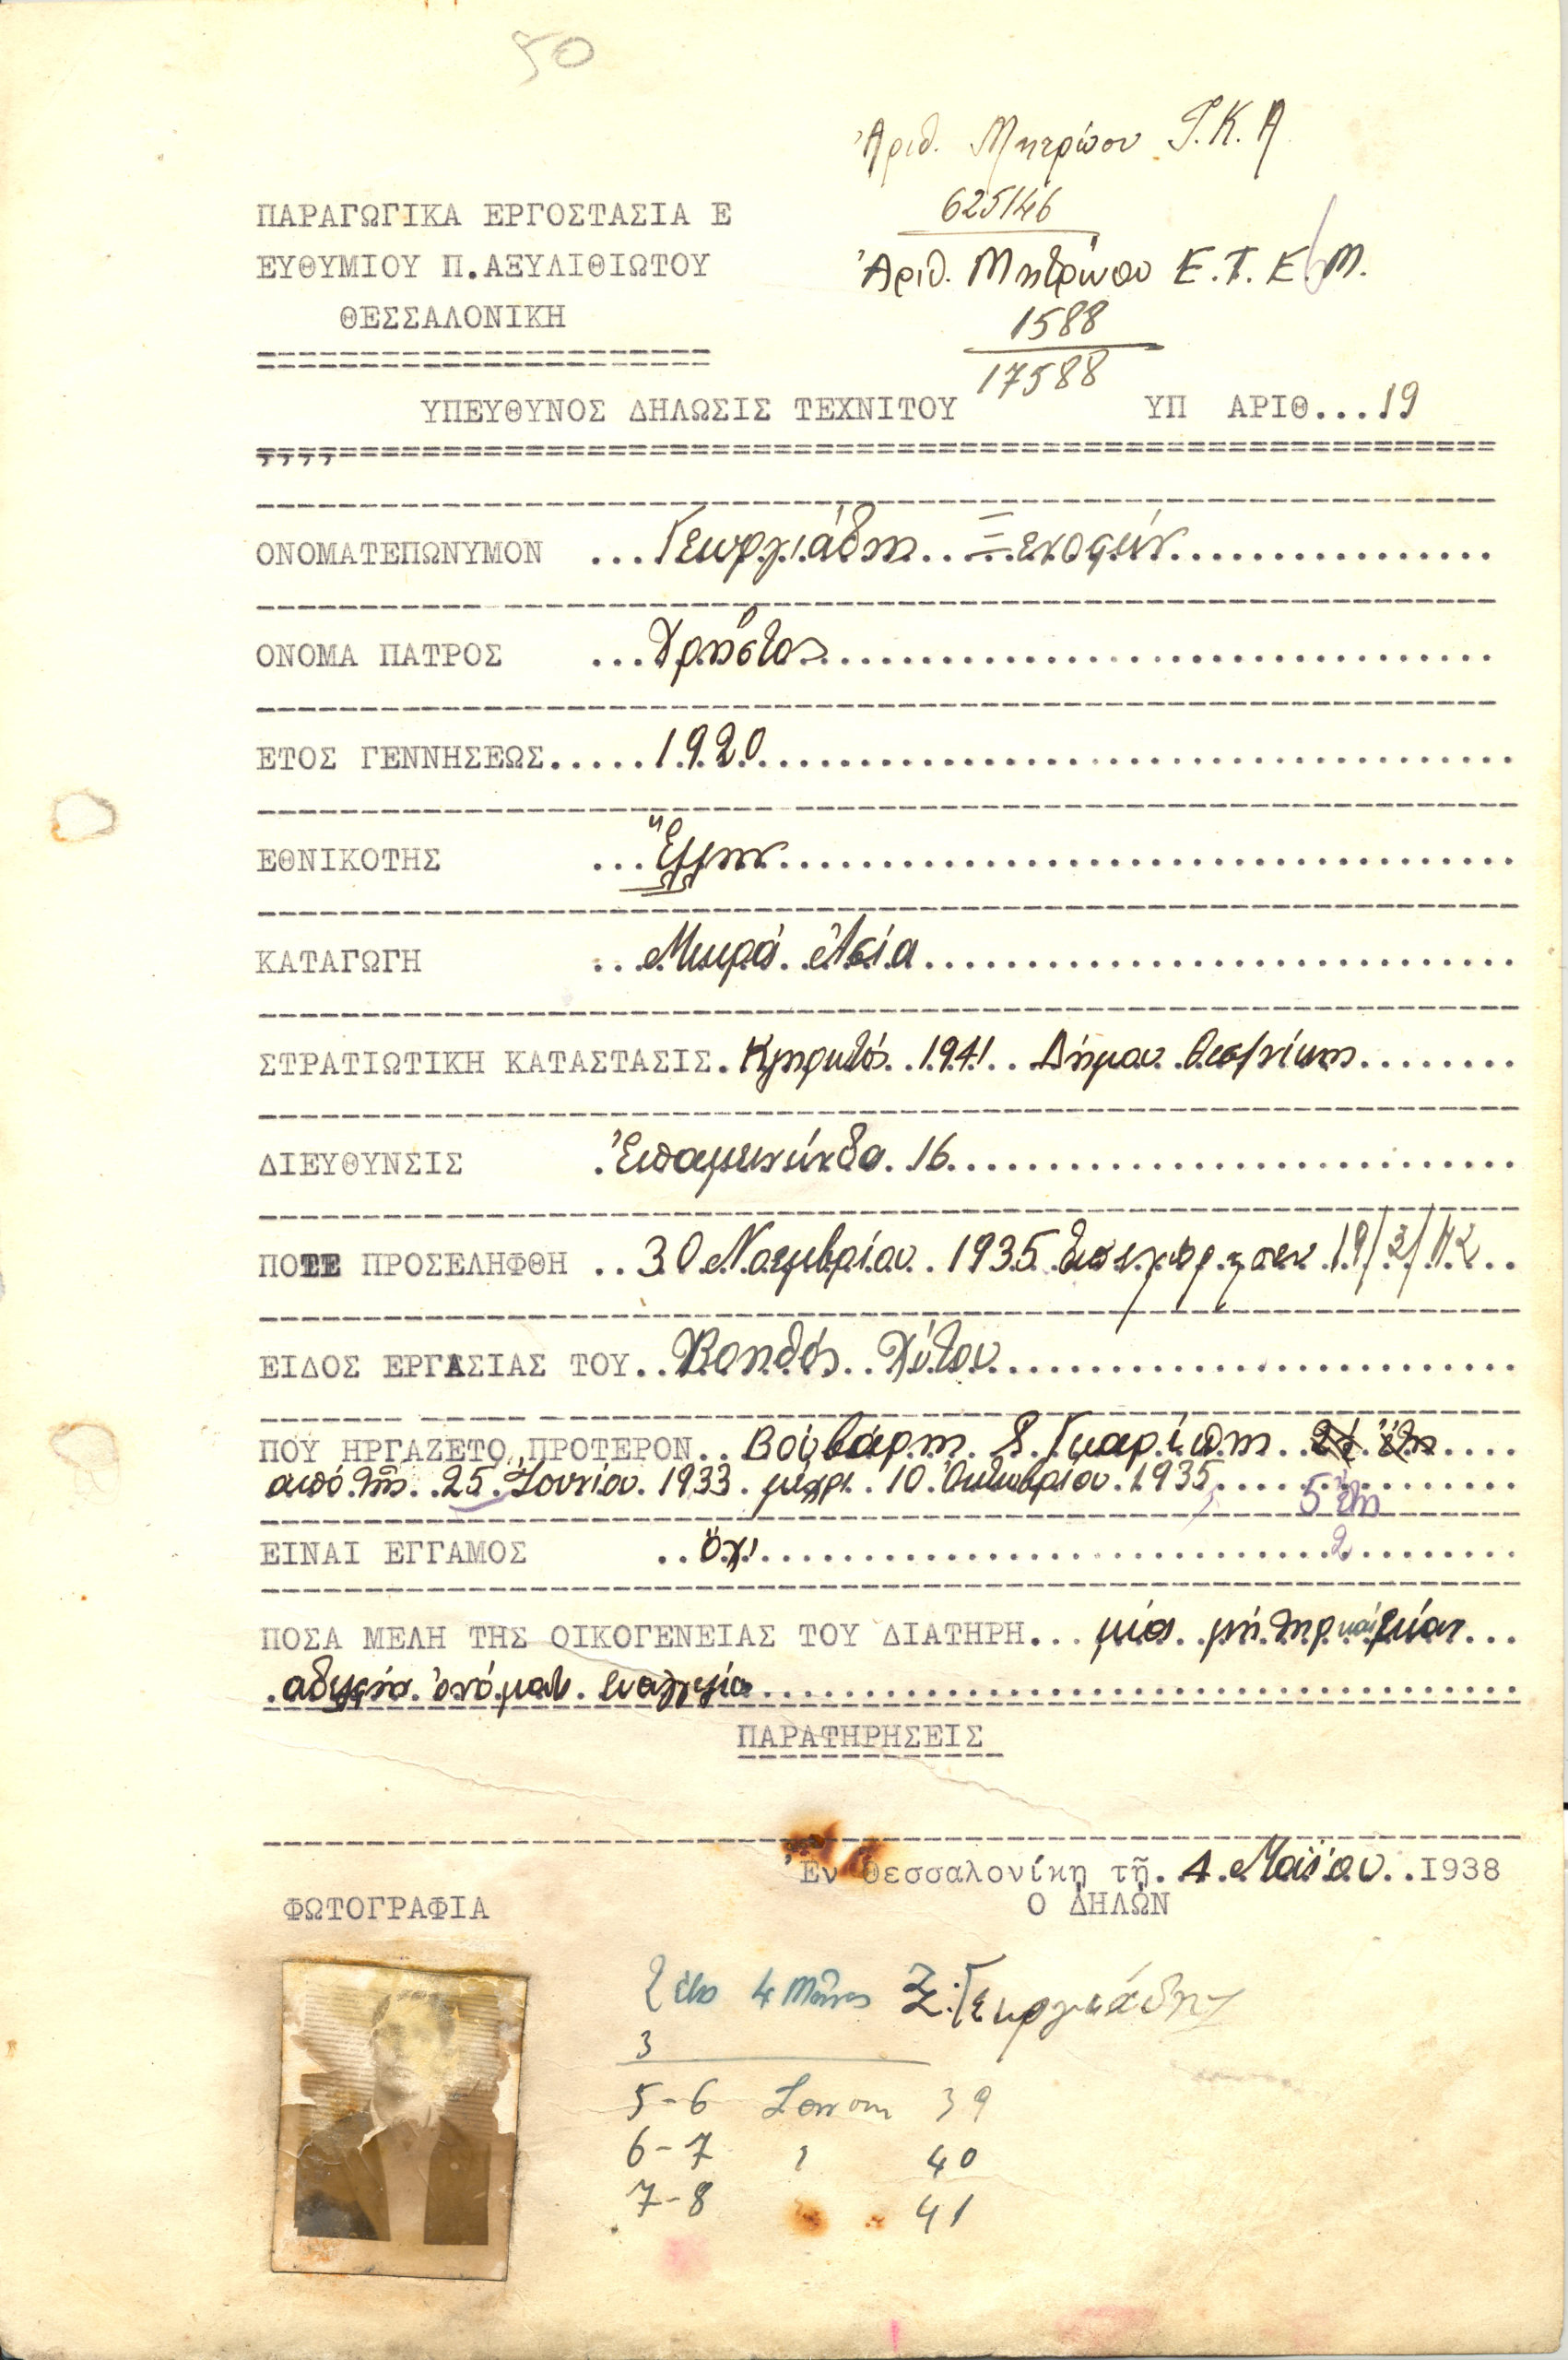 50
Ἀριθ. Μητρώου Ι.Κ.Α
625146
ΠΑΡΑΓΩΓΙΚΑ ΕΡΓΟΣΤΑΣΙΑ Ε
ΕΥΘΥΜΙΟΥ Π.ΑΞΥΛΙΘΙΩΤΟΥ
Ἀριθ. Μητρώου Ε.Τ.Ε.Μ.
ΘΕΣΣΑΛΟΝΙΚΗ
1588
17588
ΥΠΕΥΘΥΝΟΣ ΔΗΛΩΣΙΣ ΤΕΧΝΙΤΟΥ ΥΠ ΑΡΙΘ...19
ΟΝΟΜΑΤΕΠΩΝΥΜΟΝ ...Γεωργιάδης Ξενοφών
ΟΝΟΜΑ ΠΑΤΡΟΣ ...Χρήστος
ΕΤΟΣ ΓΕΝΝΗΣΕΩΣ.....1920
ΕΘΝΙΚΟΤΗΣ ...Ἕλλην
ΚΑΤΑΓΩΓΗ ...Μικρά Ἀσία
ΣΤΡΑΤΙΩΤΙΚΗ ΚΑΤΑΣΤΑΣΙΣ. Κληρωτός 1941 Δήμου Θεσ/νίκης
ΔΙΕΥΘΥΝΣΙΣ .Ἐπαμεινώνδα 16
ΠΟΤΕ ΠΡΟΣΕΛΗΦΘΗ ..30 Νοεμβρίου 1935 Ἀπεχώρησεν 19/3/42
ΕΙΔΟΣ ΕΡΓΑΣΙΑΣ ΤΟΥ..Βοηθός Χύτου
ΠΟΥ ΗΡΓΑΖΕΤΟ ΠΡΟΤΕΡΟΝ..Βούβάρης & Γκαρίπης 2½ ἔτη
από τῆς 25 Ἰουνίου 1933 μέχρι 10 Ὀκτωβρίου 1935
5 ἔτη
ΕΙΝΑΙ ΕΓΓΑΜΟΣ ..ὄχι
2
ΠΟΣΑ ΜΕΛΗ ΤΗΣ ΟΙΚΟΓΕΝΕΙΑΣ ΤΟΥ ΔΙΑΤΗΡΗ... μία μήτηρ καί μίαν
αδελφήν ὀνόματι
ΠΑΡΑΤΗΡΗΣΕΙΣ
Ἐν Θεσσαλονίκῃ τῇ. 4 Μαΐου..1938
ΦΩΤΟΓΡΑΦΙΑ Ο ΔΗΛΩΝ
2 ἔτη 4 Μῆνες Ξ. Γεωργιάδης
3
5-6 Ιουνιου 39
6-7 " 40
7-8 " 41